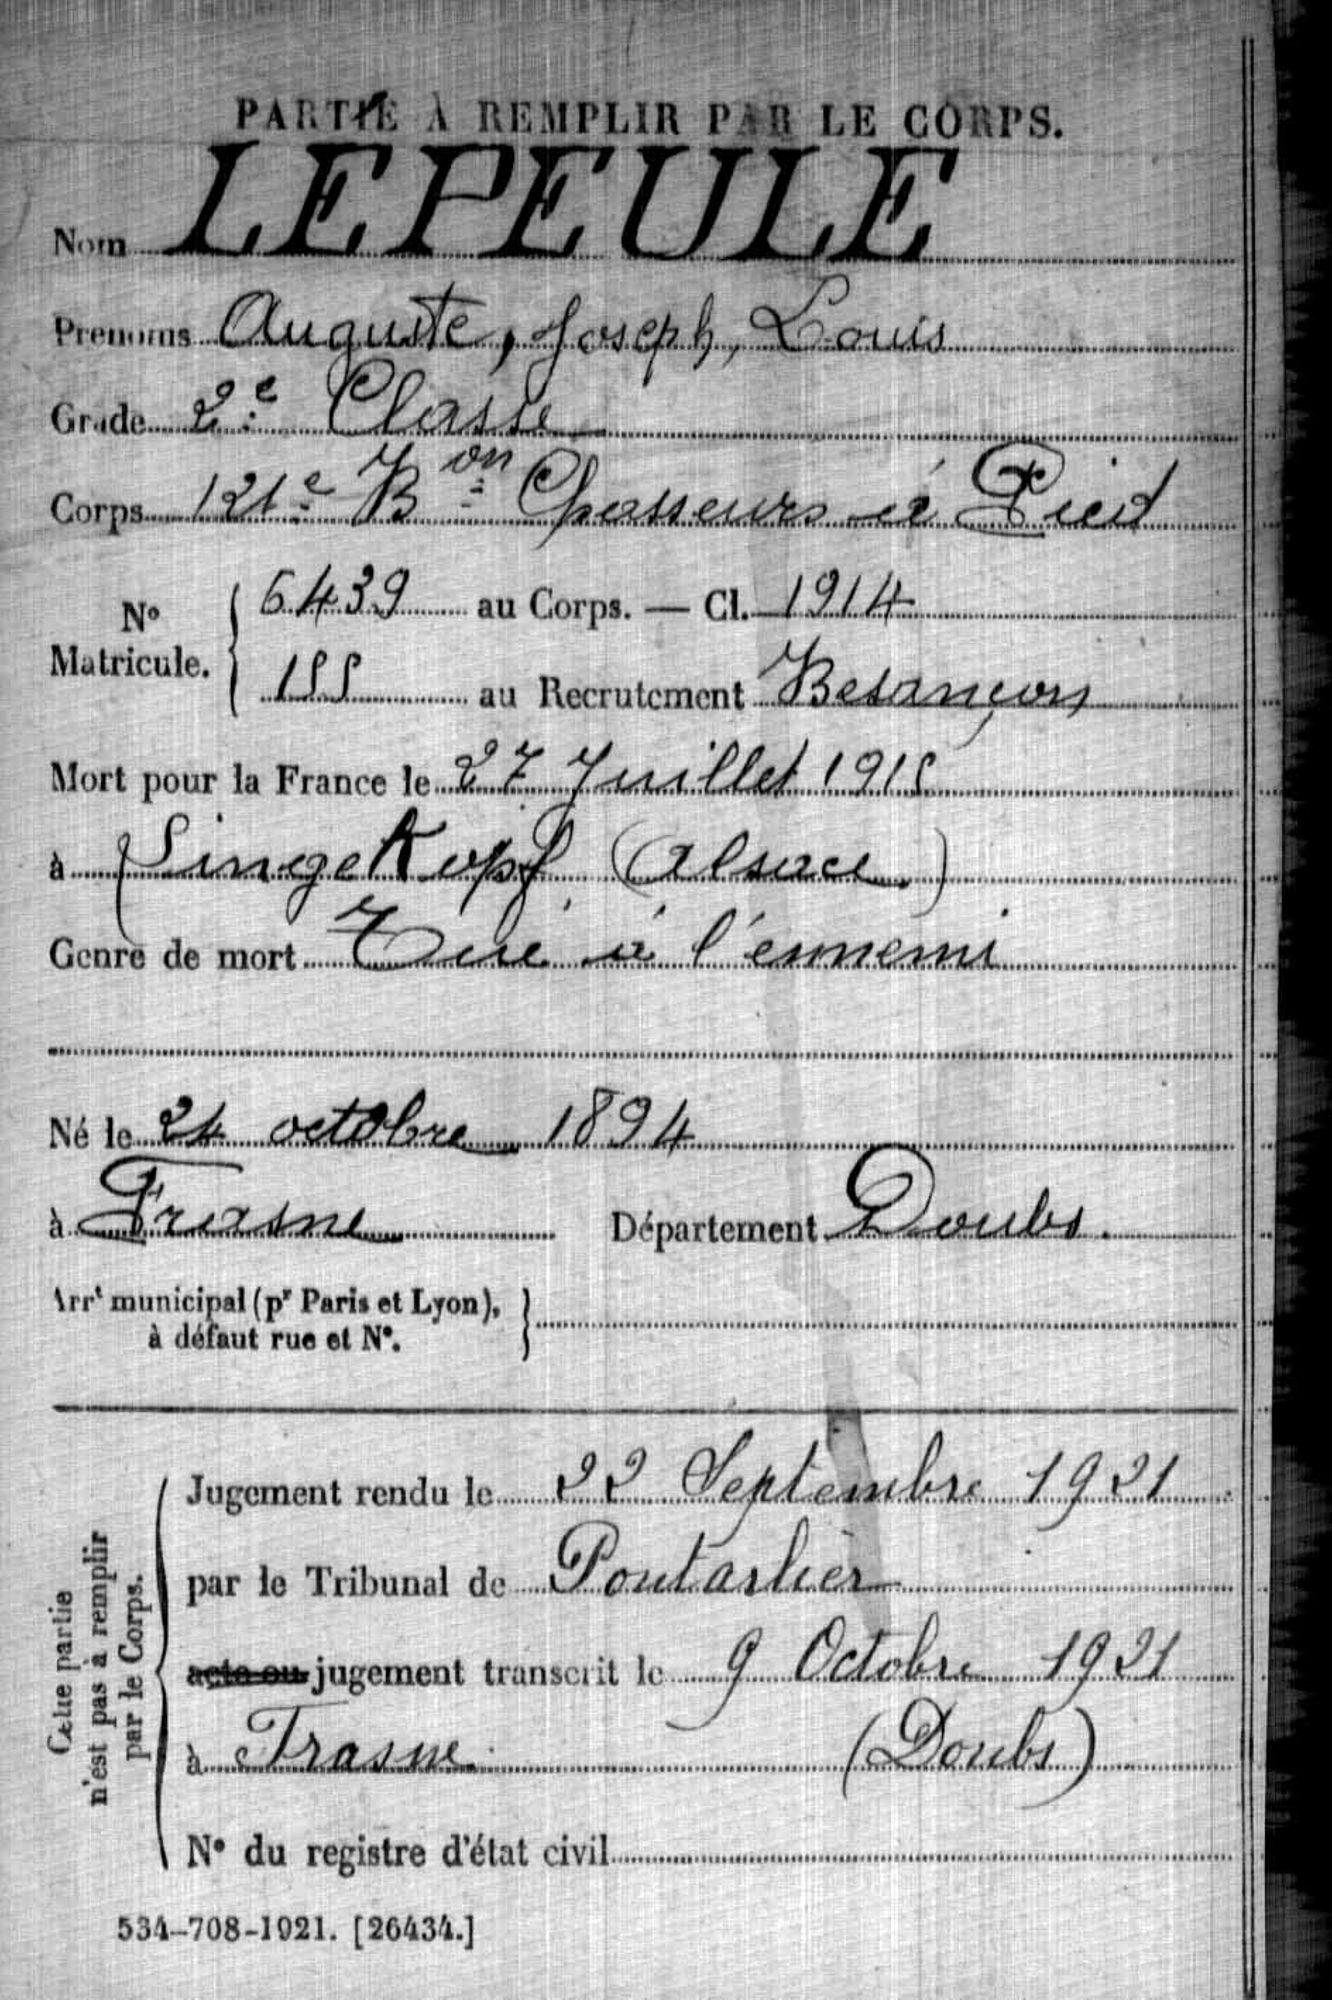 PARTIE À REMPLIR PAR LE CORPS.
Nom LEPEULE
Prénoms Auguste, Joseph, Louis
Grade 2e Classe
Corps 121e Bon Chasseurs à Pied
No Matricule. { 6439 au Corps. — Cl. 1914
155 au Recrutement Besançon
Mort pour la France le 27 Juillet 1915
à LingeKopf (Alsace)
Genre de mort Tué à l'ennemi
Né le 24 octobre 1894
à Frasne Département Doubs.
Arrt municipal (pr Paris et Lyon), }
à défaut rue et No.
Cette partie
n'est pas à remplir
par le Corps.
Jugement rendu le 22 Septembre 1921
par le Tribunal de Pontarlier
acte ou jugement transcrit le 9 Octobre 1921
à Frasne (Doubs)
No du registre d'état civil
534-708-1921. [26434.]